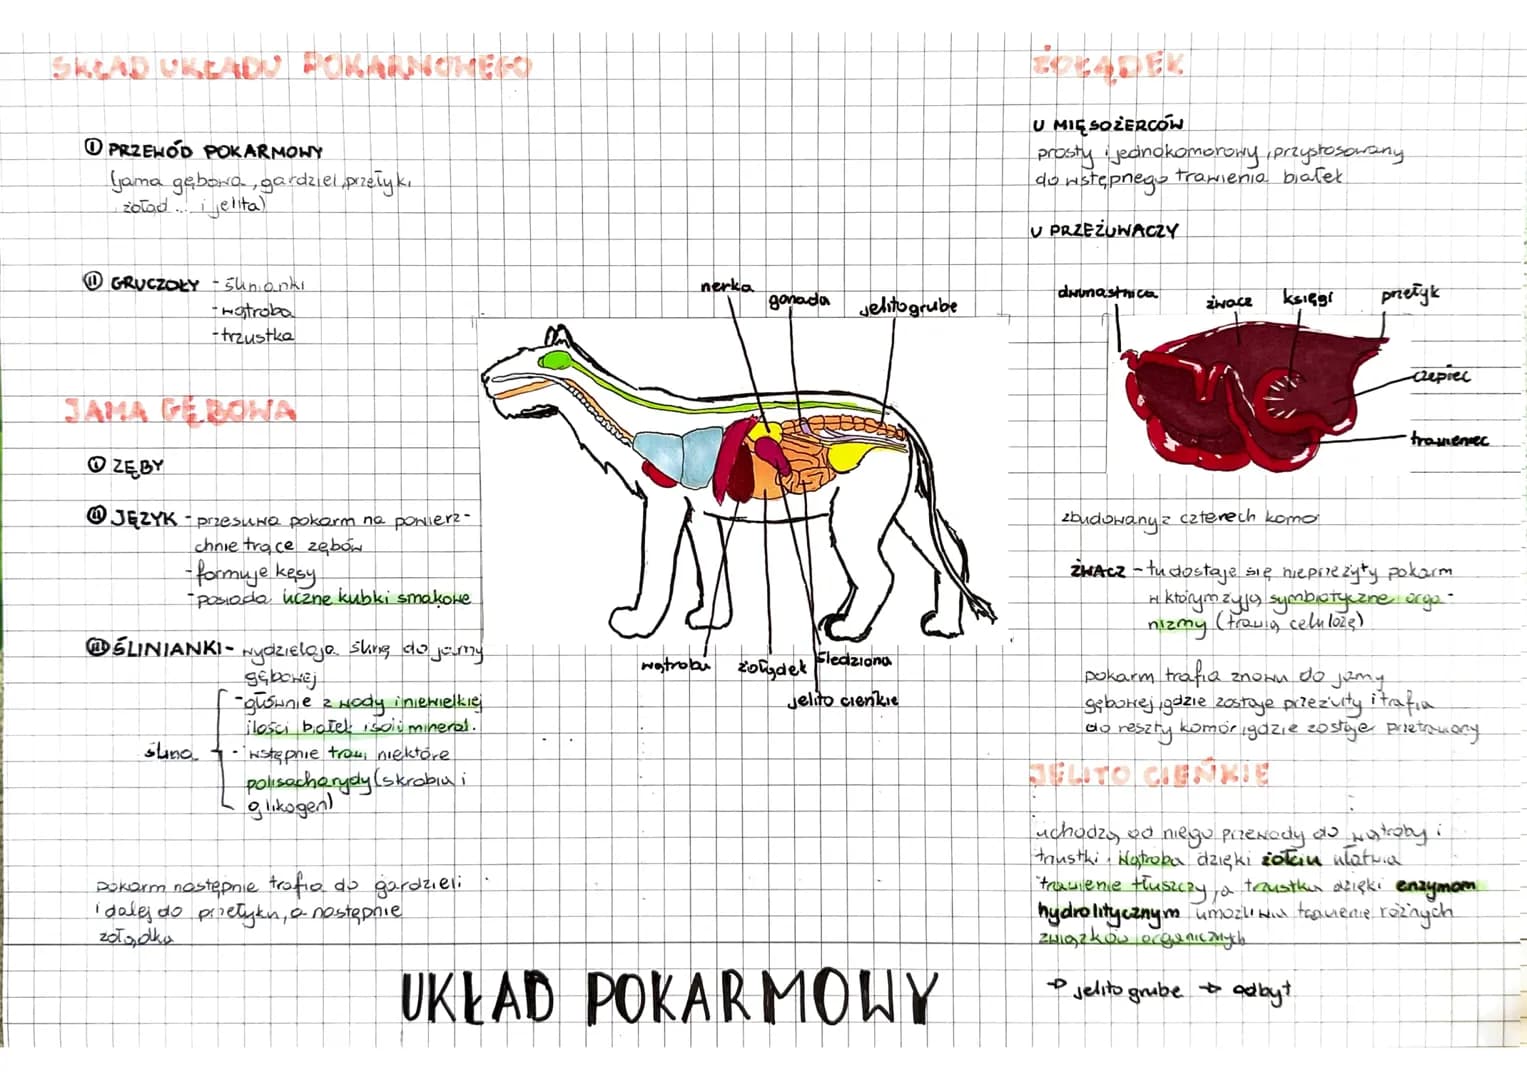 SKŁAD UKŁADU POKARMOWEGO
I PRZEWÓD POKARMOWY
(jama gębowa, gardziel, przełyk,
żołąd... i jelita)
II GRUCZOŁY - ślinianki
- wątroba
- trzustka
JAMA GĘBOWA
I ZĘBY
II JĘZYK - przesuwa pokarm na powierz-
chnie trące zębów
- formuje kęsy
- posiada liczne kubki smakowe
III ŚLINIANKI - wydzielają ślinę do jamy
gębowej
- głównie z wody i niewielkiej
ilości białek i soli mineral.
ślina - wstępnie trawi niektóre
polisacharydy (skrobia i
glikogen)
pokarm następnie trafia do gardzieli
i dalej do przełyku, a następnie
żołądka
nerka
gonada
jelito grube
wątroba
żołądek
śledziona
jelito cienkie
UKŁAD POKARMOWY
ŻOŁĄDEK
U MIĘSOŻERCÓW
prosty i jednokomorowy, przystosowany
do wstępnego trawienia białek
U PRZEŻUWACZY
dwunastnica
żwacz
księgi
przełyk
czepiec
trawieniec
zbudowany z czterech komór
ŻWACZ - tu dostaje się nieprzeżyty pokarm
w którym żyją symbiotyczne orga-
nizmy (trawią celulozę)
pokarm trafia znowu do jamy
gębowej, gdzie zostaje przeżuty i trafia
do reszty komór, gdzie zostaje przetrawiony
JELITO CIEŃKIE
uchodzą od niego przewody do wątroby i
trzustki. Wątroba dzięki żółciu ułatwia
trawienie tłuszczy, a trzustka dzięki enzymom
hydrolitycznym umożliwia trawienie różnych
związków organicznych
→ jelito grube → odbyt